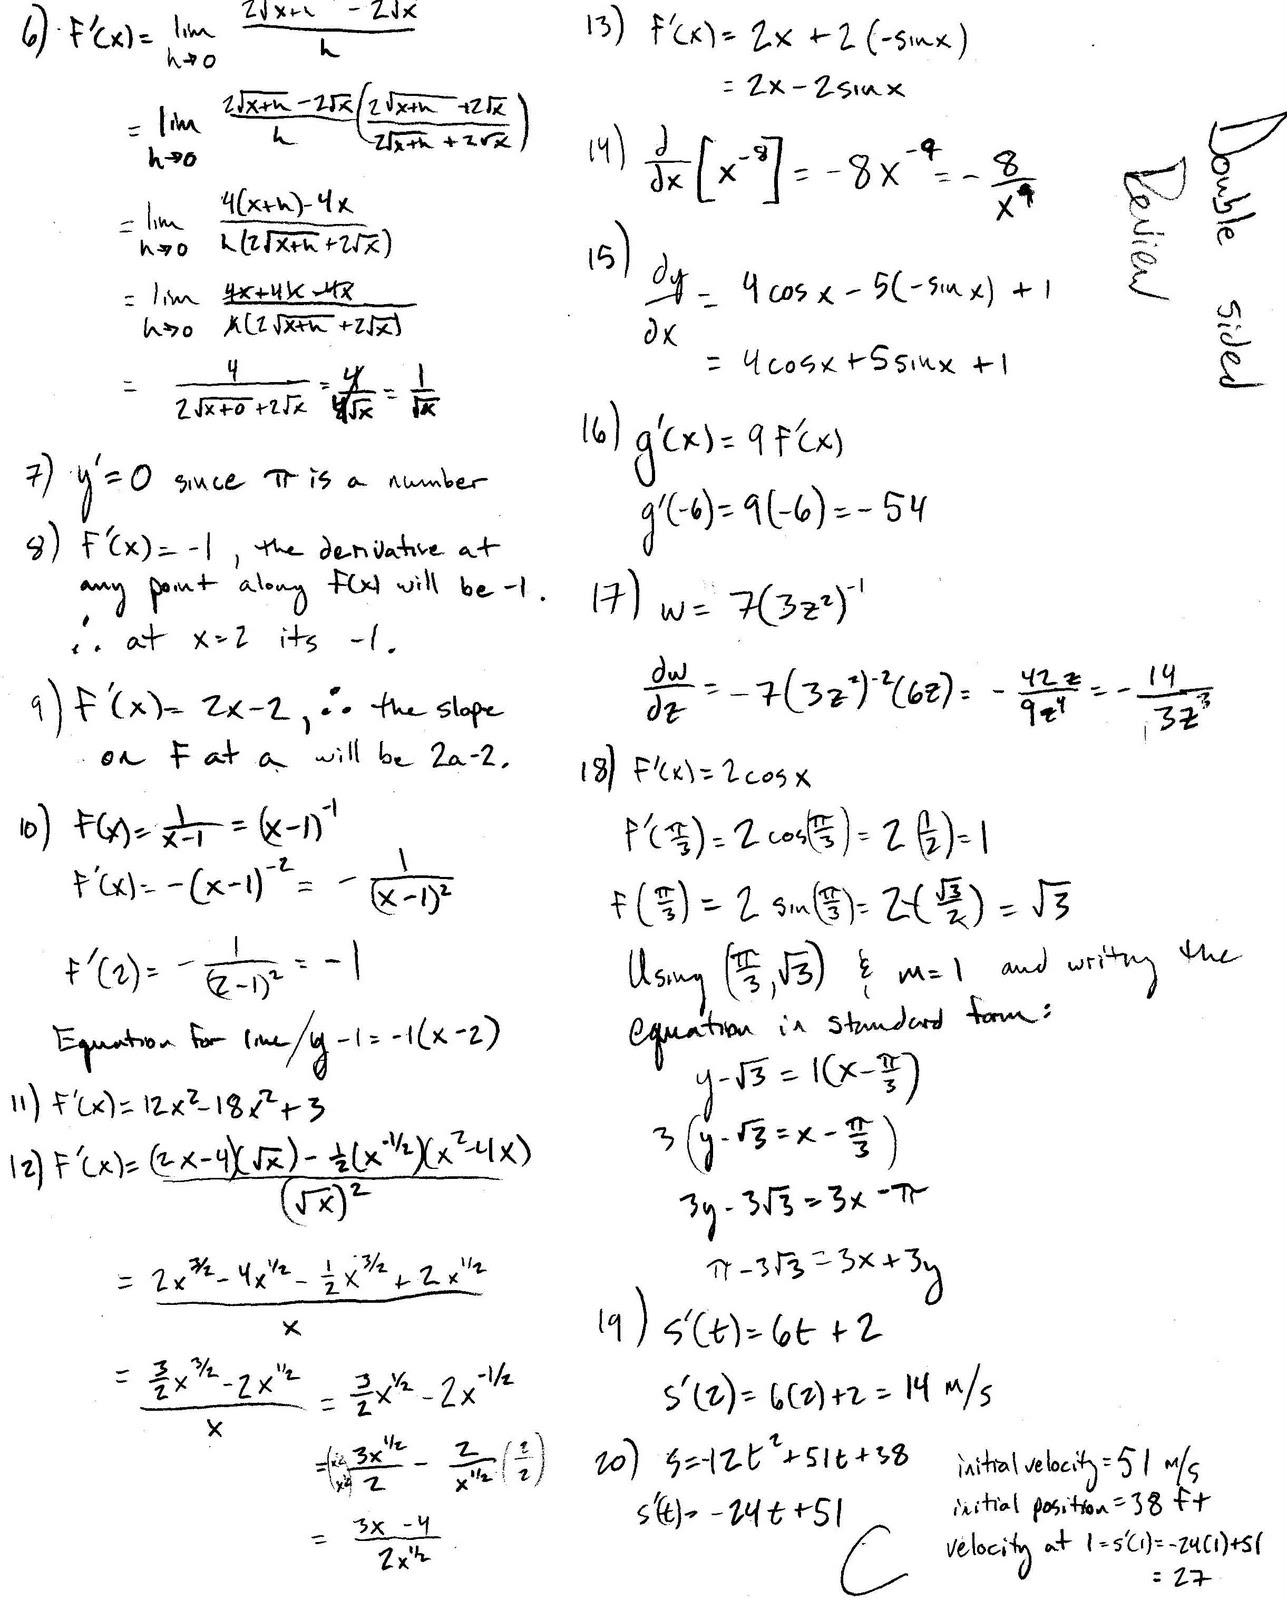 6) F'(x) = lim h→0 (2√x+h - 2√x)/h
= lim h→0 (2√x+h - 2√x)/h ((2√x+h + 2√x)/(2√x+h + 2√x))
= lim h→0 (4(x+h) - 4x)/(h(2√x+h + 2√x))
= lim h→0 (4x+4h-4x)/(h(2√x+h + 2√x))
= 4/(2√x+0 + 2√x) = 4/4√x = 1/√x
7) y' = 0 since π is a number
8) F'(x) = -1, the derivative at
any point along F(x) will be -1.
∴ at x=2 its -1.
9) F'(x) = 2x-2, ∴ the slope
on F at a will be 2a-2.
10) F(x) = 1/(x-1) = (x-1)^-1
F'(x) = -(x-1)^-2 = - 1/(x-1)^2
F'(2) = - 1/(2-1)^2 = -1
Equation for line / y-1 = -1(x-2)
11) F'(x) = 12x^2 - 18x^2 + 3
12) F'(x) = ((2x-4)(√x) - 1/2(x^-1/2)(x^2-4x))/(√x)^2
= (2x^3/2 - 4x^1/2 - 1/2 x^3/2 + 2x^1/2)/x
= (3/2 x^3/2 - 2x^1/2)/x = 3/2 x^1/2 - 2x^-1/2
= (x^1/2/x^1/2) 3x^1/2/2 - 2/x^1/2 (2/2)
= (3x-4)/(2x^1/2)
13) F'(x) = 2x + 2(-sinx)
= 2x - 2sinx
14) d/dx [x^-8] = -8x^-9 = - 8/x^9
15) dy/dx = 4cosx - 5(-sinx) + 1
= 4cosx + 5sinx + 1
16) g'(x) = 9F'(x)
g'(-6) = 9(-6) = -54
17) w = 7(3z^2)^-1
dw/dz = -7(3z^2)^-2(6z) = - 42z/9z^4 = - 14/3z^3
18) F'(x) = 2cosx
F'(π/3) = 2cos(π/3) = 2(1/2) = 1
F(π/3) = 2 sin(π/3) = 2·(√3/2) = √3
Using (π/3, √3) & m=1 and writing the
equation in standard form:
y-√3 = 1(x-π/3)
3(y-√3 = x-π/3)
3y-3√3 = 3x-π
π-3√3 = 3x+3y
19) s'(t) = 6t+2
s'(2) = 6(2)+2 = 14 m/s
20) s=-12t^2+51t+38
s'(t) = -24t+51
initial velocity = 51 m/s
initial position = 38 ft
velocity at 1 = s'(1) = -24(1)+51
= 27
Double sided
Review